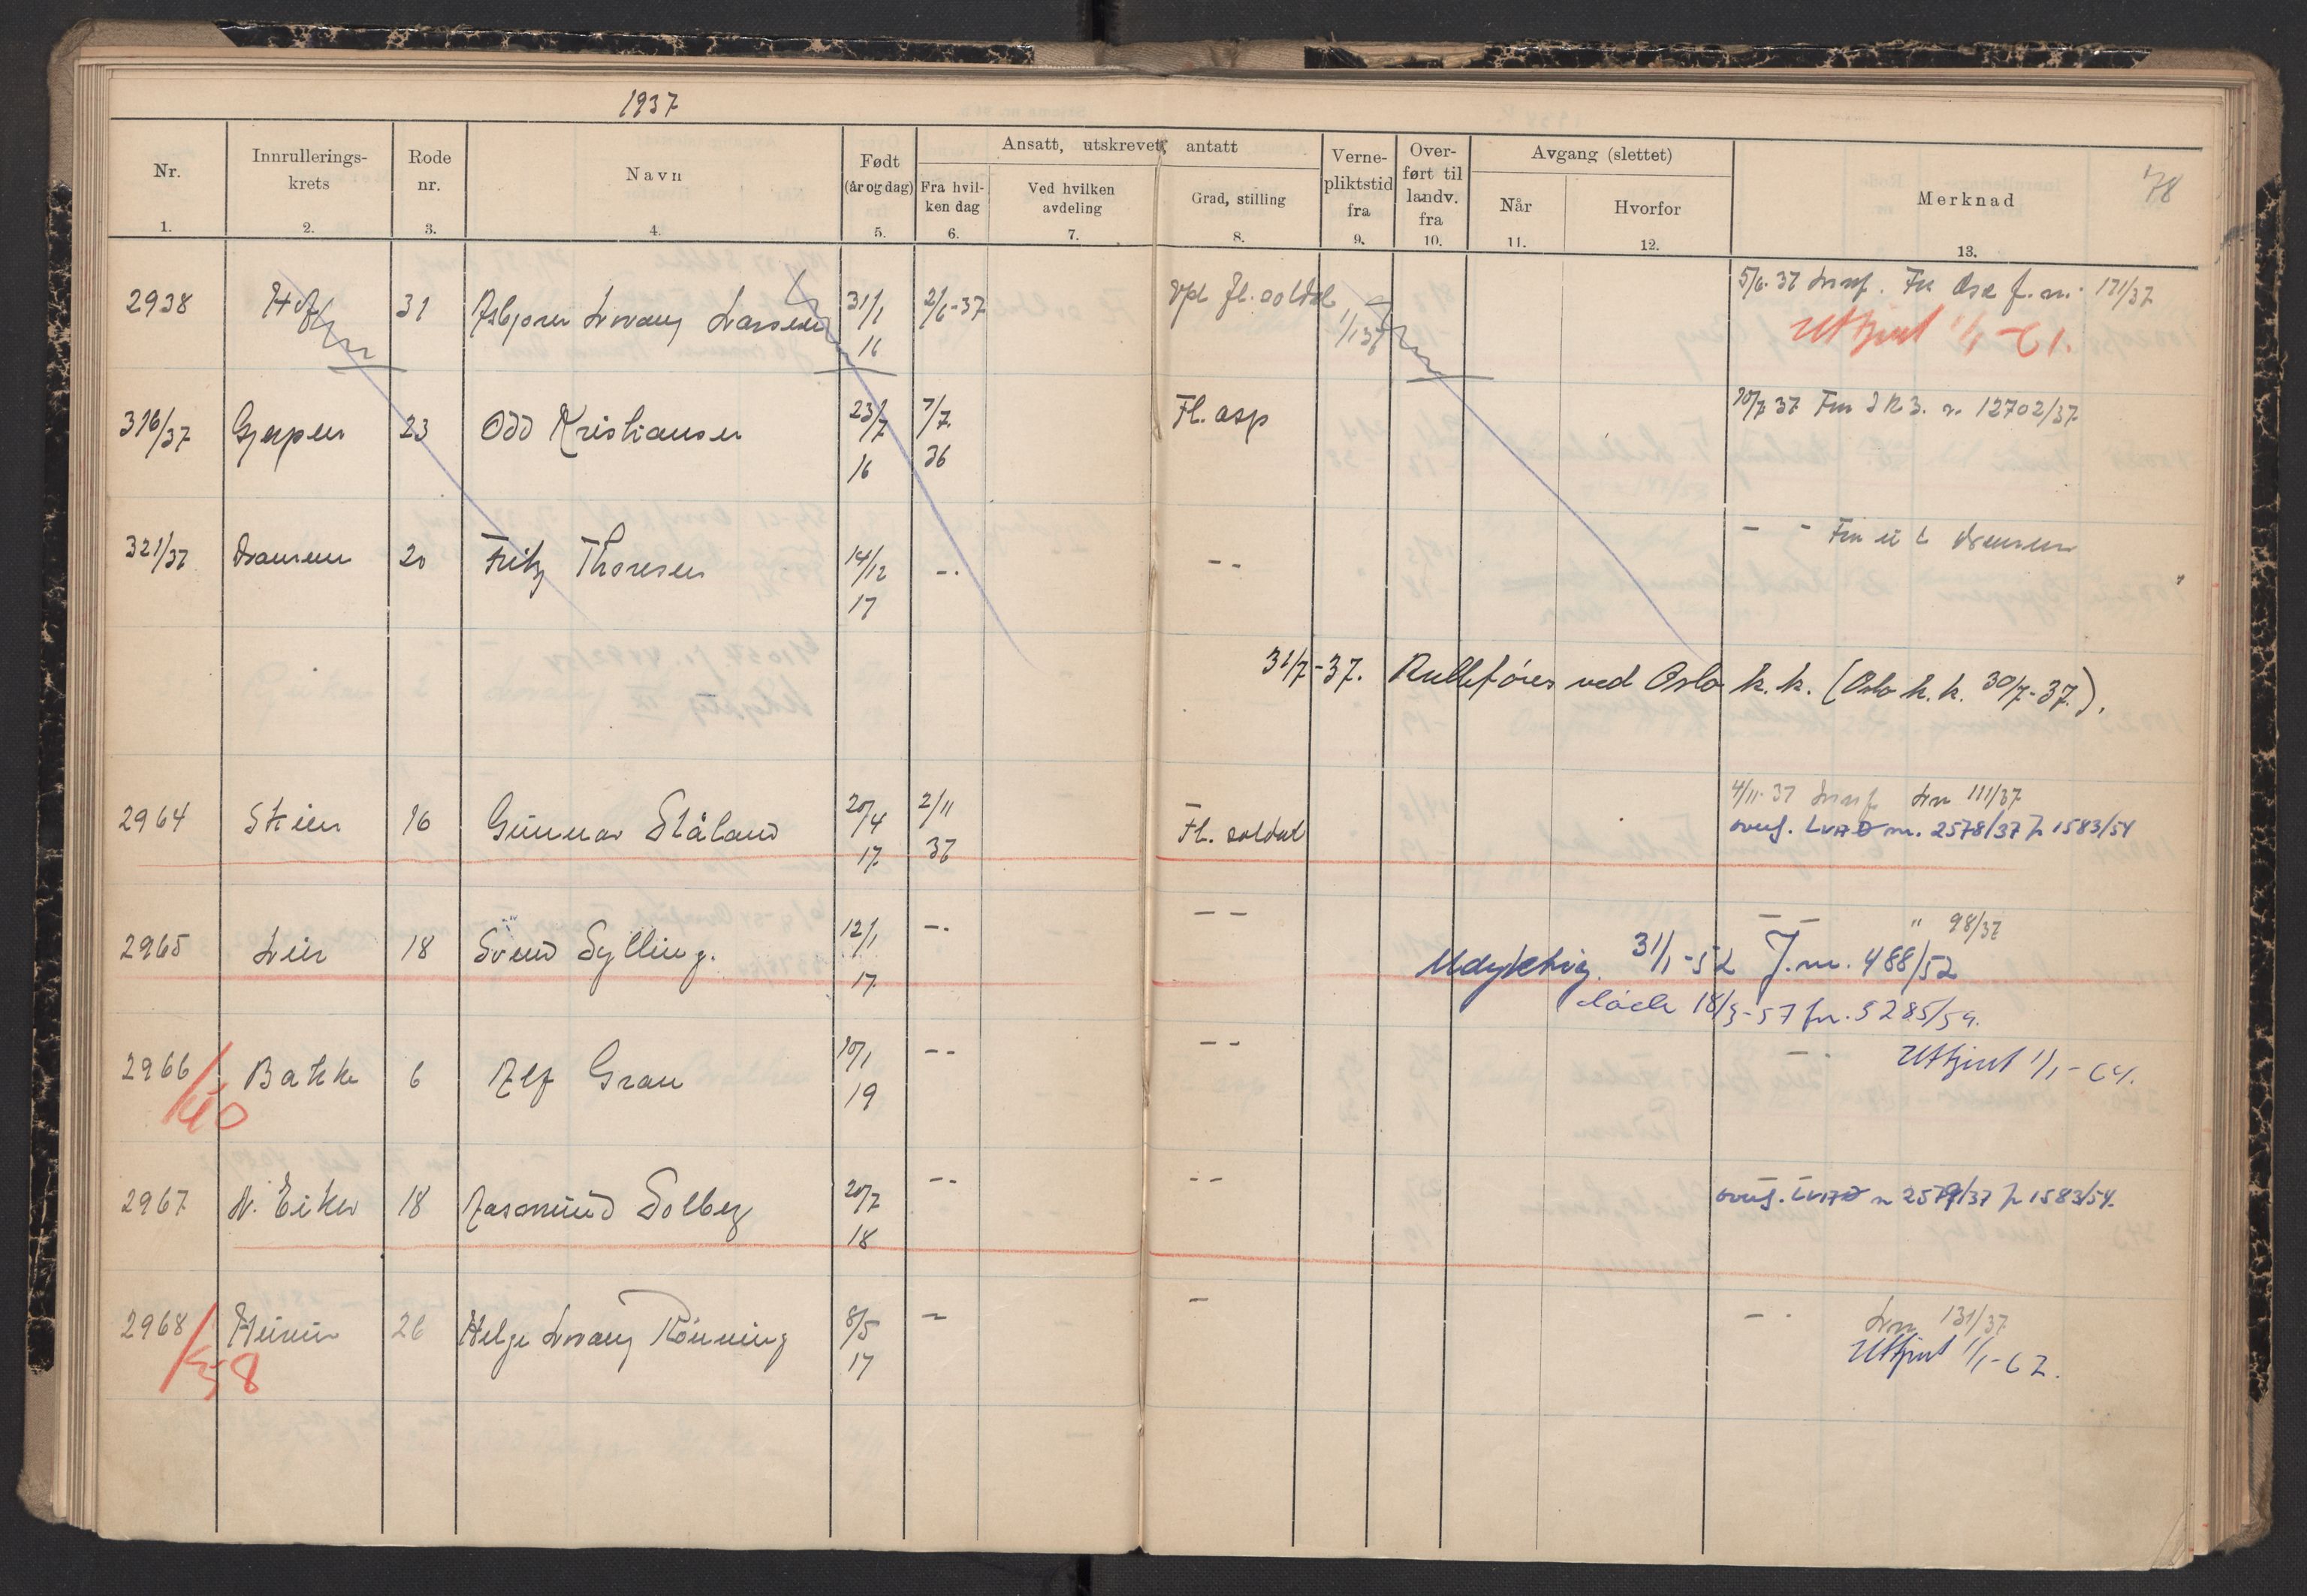 1937
78
Nr. Innrullerings-krets Rode nr. Navn Født (år og dag) Ansatt, utskrevet, antatt Fra hvil-ken dag Ved hvilken avdeling Grad, stilling Verne-pliktstid fra Over-ført til landv. fra Avgang (slettet) Når Hvorfor Merknad
1. 2. 3. 4. 5. 6. 7. 8. 9. 10. 11. 12. 13.
2938 31 Asbjørn Larsen 31/1 16 2/6-37 Vpl fl. soldat 1/1 37 5/6-37 J.nr. 121/37
Uttjent 1/1-61.
316/37 Gjerpen 23 Odd Kristiansen 23/7 16 7/7. 36 Fl. asp 10/7 37 Fra I R 3. nr. 12702/37
321/37 Dramen 20 Fritz Thoresen 14/12 17 -. - - - - Fra
31/7-37. Rulleføres ved Oslo k.k. (Oslo k.k. 30/7-37.).
2964 Skien 16 Gunnar Ståland 20/4 17 2/11 37 Fl. soldat 4/11-37 111/37
overf. LVAD nr. 2578/37 J 1583/54
2965 Lier 18 Svend Sylling. 12/1 17 -. - - - - " 98/37
Udyktig. 31/1-52 J.nr. 488/52
18/3-57 jnr. 3285/59.
2966 Bakke 6 Alf Grau 10/1 19 - - - - Uttjent 1/1-64.
/40
2967 N. Eiker 18 Aasmund Solberg 20/7 18 - - - - overf. LVAD nr 2579/37 J 1583/54.
2968 Hurum 26 Helge Rönning 8/5 17 - - - - 131/37
/38 Uttjent 1/1-62.